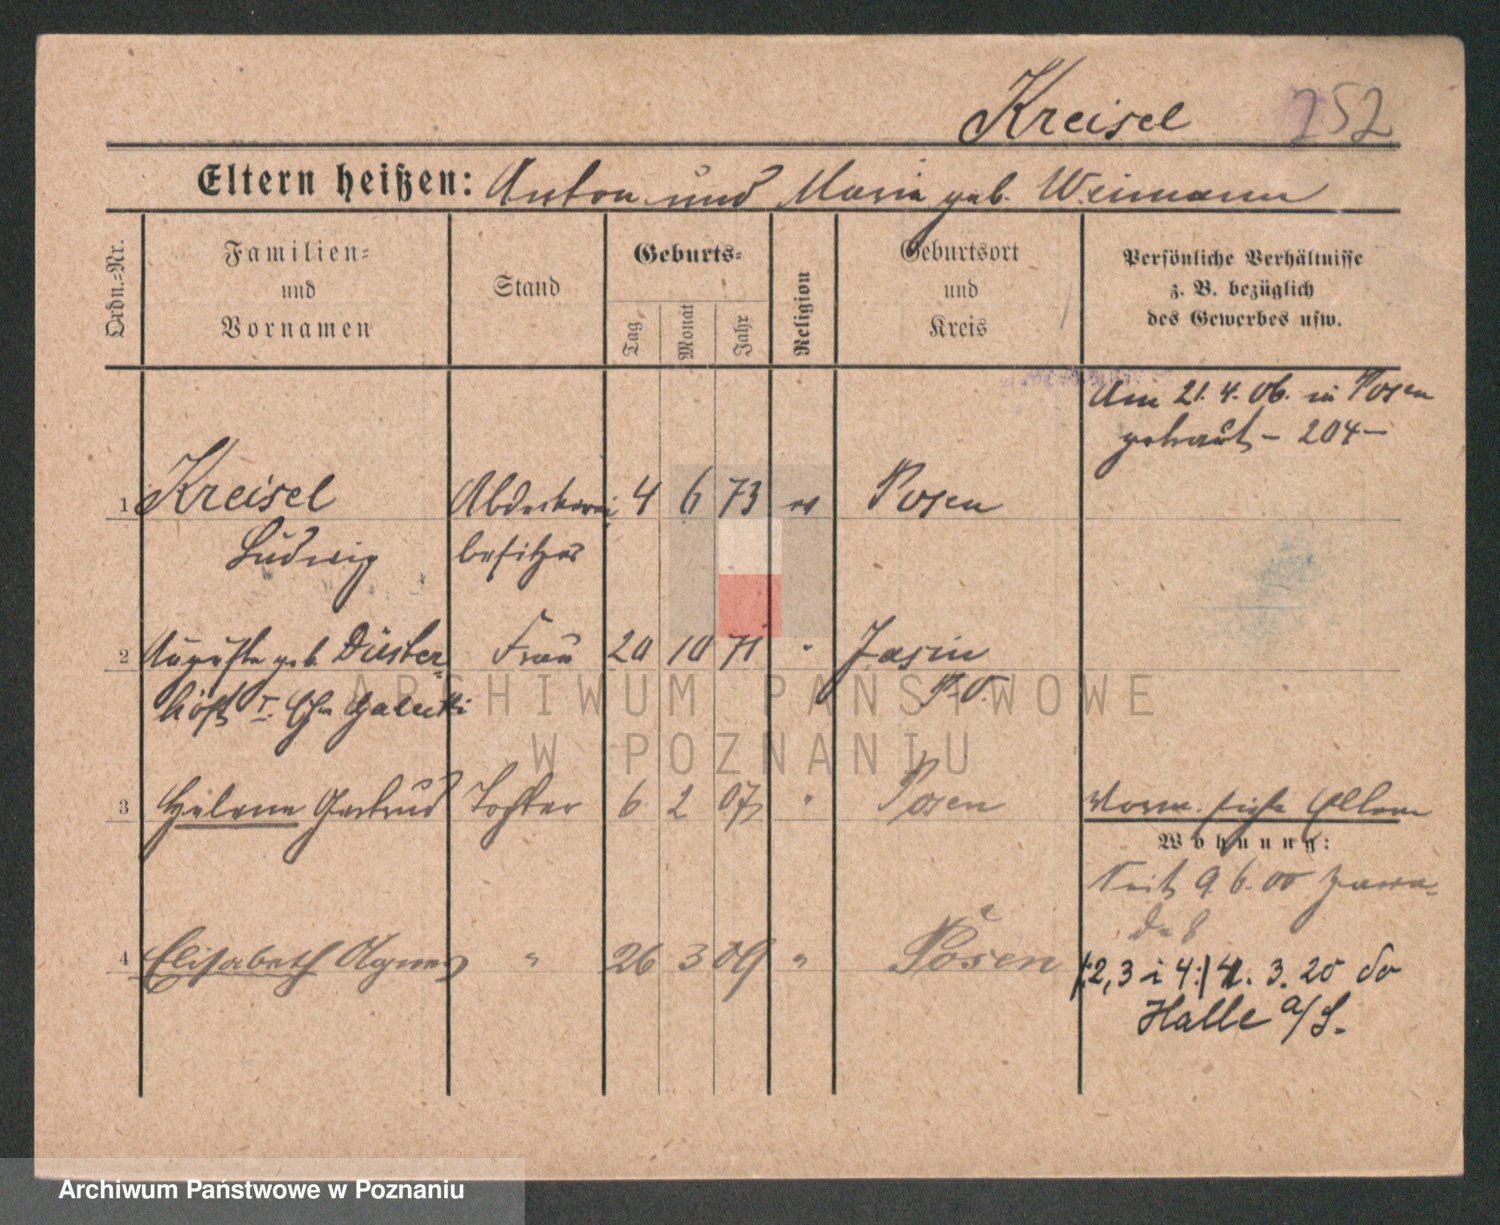 Kreisel 252
Eltern heißen: Anton und Maria geb. Weimann
Ordn.-Nr.
Familien-
und
Vornamen
Stand
Geburts-
Tag
Monat
Jahr
Religion
Geburtsort
und
Kreis
Persönliche Verhältnisse
z. B. bezüglich
des Gewerbes usw.
Am 21. 4. 06. in Posen
getraut – 204 –
1 Kreisel Abdeckerei 4 6 73 ev Posen
Ludwig besitzer
2 Auguste geb. Düster- Frau 20 10 71 " Jasin
höft I. Galecki P. O.
3 Helene Gertrud Tochter 6 2 07 " Posen
Vorm. siehe Eltern
Wohnung:
Seit 9. 6. 00 Zawa-
de 8
4 Elisabeth Agnes " 26 3 09 " Posen
/:2, 3 i 4:/ 4. 3. 20 do
Halle a/S.
ARCHIWUM PAŃSTWOWE
W POZNANIU
Archiwum Państwowe w Poznaniu